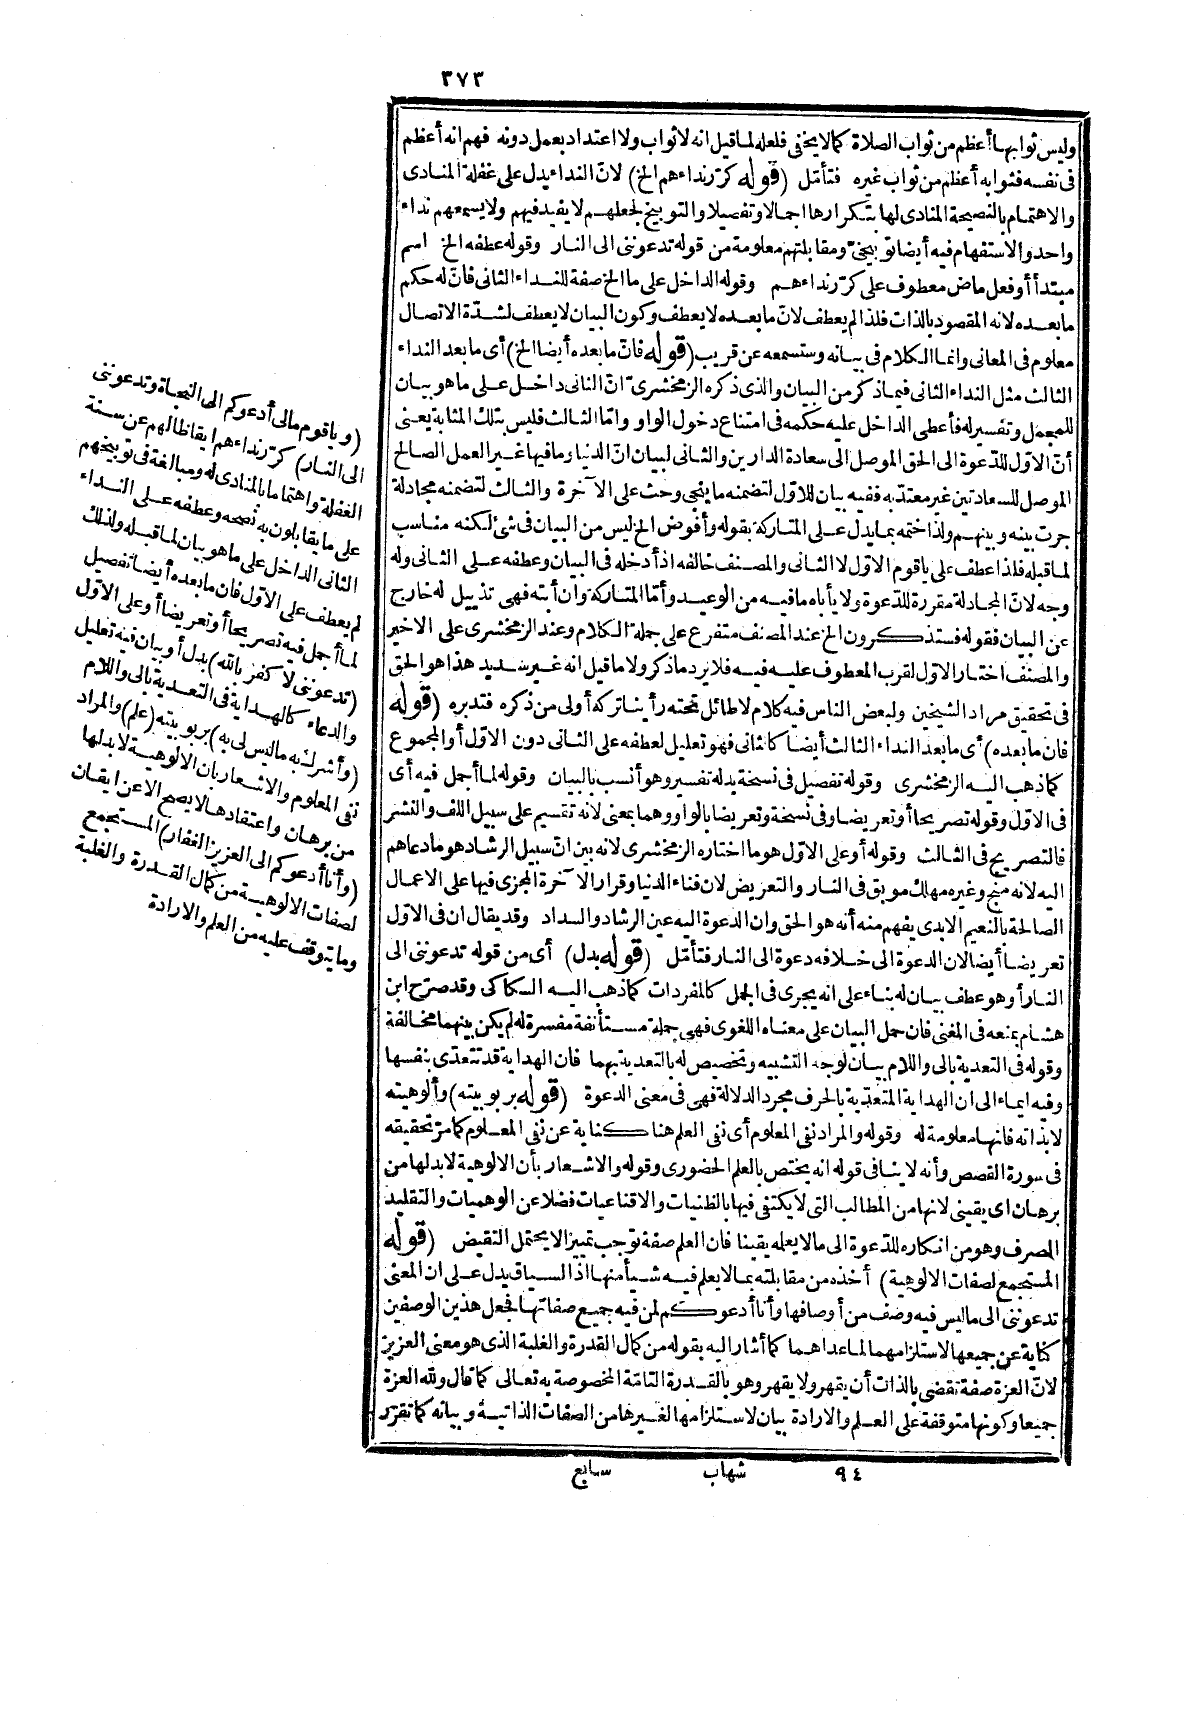 ٣٧٣
وليس ثوابها أعظم من ثواب الصلاة كما لا يخفى فلعله لما قيل انه لا ثواب ولا اعتداد بعمل دونه فهم انه أعظم
فى نفسه فثوابه أعظم من ثواب غيره فتأمّل (قوله كرّر نداءهم الخ) لانّ النداء يدل على غفلة المنادى
والاهتمام بالنصيحة المنادى لها بتكرارها اجمالا وتفصيلا والتوبيخ لجعلهم لا يفيد فيهم ولا يسمعهم نداء
واحد والاستفهام فيه أيضا توبيخىّ ومقابلتهم معلومة من قوله تدعوننى الى النار وقوله عطفه الخ اسم
مبتدأ أو فعل ماض معطوف على كرّر نداءهم وقوله الداخل على ما الخ صفة للنداء الثانى فانّ له حكم
ما بعده لانه المقصود بالذات فلذا لم يعطف لانّ ما بعده لا يعطف وكون البيان لا يعطف لشدّة الاتصال
معلوم فى المعانى وانما الكلام فى بيانه وستسمعه عن قريب (قوله فانّ ما بعده أيضا الخ) أى ما بعد النداء
الثالث مثل النداء الثانى فيما ذكر من البيان والذى ذكره الزمخشرىّ انّ الثانى داخل على ما هو بيان
للمجمل وتفسير له فأعطى الداخل عليه حكمه فى امتناع دخول الواو وامّا الثالث فليس بتلك المثابة يعنى
أنّ الاوّل للدّعوة الى الحق الموصل الى سعادة الدارين والثانى لبيان انّ الدنيا وما فيها غير العمل الصالح
الموصل للسعادتين غير معتدّ به ففيه بيان للاوّل لتضمنه ما ينجى وحث على الآخرة والثالث لتضمنه مجادلة
جرت بينه وبينهم ولذا ختمه بما يدل على المتاركة بقوله وأفوض الخ ليس من البيان فى شئ لكنه مناسب
لما قبله فلذا عطف على ياقوم الاوّل لا الثانى والمصنف خالفه اذ أدخله فى البيان وعطفه على الثانى وله
وجه لانّ المجادلة مقررة للدّعوة ولا يأباه ما فيه من الوعيد وأمّا المتاركة وان أبته فهى تذييل له خارج
عن البيان فقوله فستذكرون الخ عند المصنف متفرع على جملة الكلام وعند الزمخشرى على الاخير
والمصنف اختار الاوّل لقرب المعطوف عليه فيه فلا يرد ما ذكر ولا ما قيل انه غير سديد هذا هو الحق
فى تحقيق مراد الشيخين ولبعض الناس فيه كلام لا طائل تحته رأينا تركه أولى من ذكره فتدبره (قوله
فان ما بعده) أى ما بعد النداء الثالث أيضا كالثانى فهو تعليل لعطفه على الثانى دون الاوّل أو المجموع
كما ذهب اليه الزمخشرى وقوله تفصيل فى نسخة بدله تفسير وهو أنسب بالبيان وقوله لما أجمل فيه أى
فى الاوّل وقوله تصريحا أو تعريضا وفى نسخة وتعريضا بالواو وهما بمعنى لانه تقسيم على سبيل اللف والنشر
فالتصريح فى الثالث وقوله أو على الاوّل هو ما اختاره الزمخشرى لانه بين انّ سبيل الرشاد هو ما دعاهم
اليه لانه منج وغيره مهلك موبق فى النار والتعريض لان فناء الدنيا وقرار الآخرة المجزى فيها على الاعمال
الصالحة بالنعيم الابدى يفهم منه أنه هو الحق وان الدعوة اليه عين الرشاد والسداد وقد يقال ان فى الاوّل
تعريضا أيضا لان الدعوة الى خلافه دعوة الى النار فتأمّل (قوله بدل) أى من قوله تدعوننى الى
النار أو هو عطف بيان له بناء على انه يجرى فى الجمل كالمفردات كما ذهب اليه السكاكى وقد صرّح ابن
هشام بمنعه فى المغنى فان حمل البيان على معناه اللغوى فهى جملة مستأنفة مفسرة له لم يكن بينهما مخالفة
وقوله فى التعدية بالى واللام بيان لوجه التشبيه وتخصيص له بالتعدية بهما فان الهداية قد تتعدّى بنفسها
وفيه ايماء الى ان الهداية المتعدّية بالحرف مجرد الدلالة فهى فى معنى الدعوة (قوله بربوبيته) وألوهيته
لا بذاته فانها معلومة له وقوله والمراد نفى المعلوم أى نفى العلم هنا كناية عن نفى المعلوم كما مرّ تحقيقه
فى سورة القصص وأنه لا ينافى قوله انه يختص بالعلم الحضورى وقوله والاشعار بأن الالوهية لا بد لها من
برهان اى يقينى لانها من المطالب التى لا يكتفى فيها بالظنيات والاقناعيات فضلا عن الوهميات والتقليد
الصرف وهو من انكاره للدّعوة الى ما لا يعلمه يقينا فان العلم صفة توجب تمييزا لا يحتمل النقيض (قوله
المستجمع لصفات الالوهية) أخذه من مقابلته بما لا يعلم فيه شيأ منها اذ السياق يدل على ان المعنى
تدعوننى الى ما ليس فيه وصف من أوصافها وأنا أدعوكم لمن فيه جميع صفاتها فجعل هذين الوصفين
كناية عن جميعها لاستلزامهما لما عداهما كما أشار اليه بقوله من كمال القدرة والغلبة الذى هو معنى العزيز
لانّ العزة صفة تقتضى بالذات أن يقهر ولا يقهر وهو بالقدرة التامّة المخصوصة به تعالى كما قال ولله العزة
جميعا وكونها متوقفة على العلم والارادة بيان لاستلزامها لغيرها من الصفات الذاتية وبيانه كما تقرّر
(وياقوم مالى أدعوكم الى النجاة وتدعوننى
الى النار) كرّر نداءهم ايقاظا لهم عن سنة
الغفلة واهتماما بالمنادى له ومبالغة فى توبيخهم
على ما يقابلون به نصحه وعطفه على النداء
الثانى الداخل على ما هو بيان لما قبله ولذلك
لم يعطف على الاوّل فان ما بعده أيضا تفصيل
لما أجمل فيه تصريحا أو تعريضا أو على الاوّل
(تدعوننى لاكفر بالله) بدل أو بيان فيه تعليل
والدعاء كالهداية فى التعدية بالى واللام
(وأشرك به ما ليس لى به) بربوبيته (علم) والمراد
نفى المعلوم والاشعار بان الالوهية لا بد لها
من برهان واعتقادها لا يصح الا عن ايقان
(وأنا أدعوكم الى العزيز الغفار) المستجمع
لصفات الالوهية من كمال القدرة والغلبة
وما يتوقف عليه من العلم والارادة
٩٤ شهاب سابع